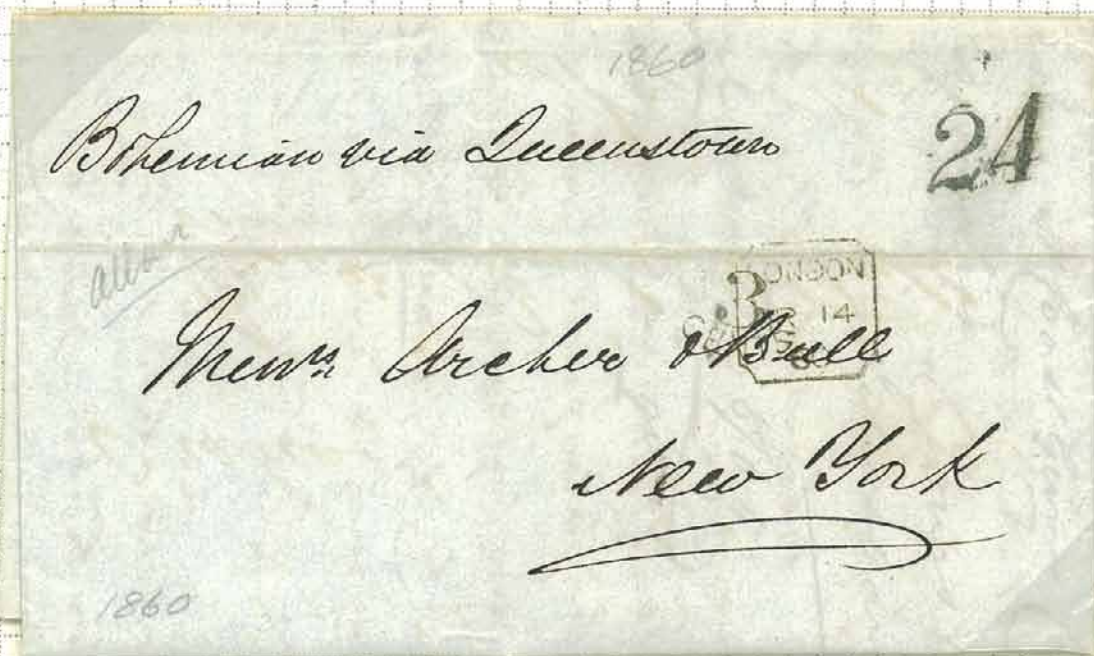 1860
Bohemian via Queenstown
24
Allan
LONDON
14
60
Messrs. Archer & Bull
New York
1860